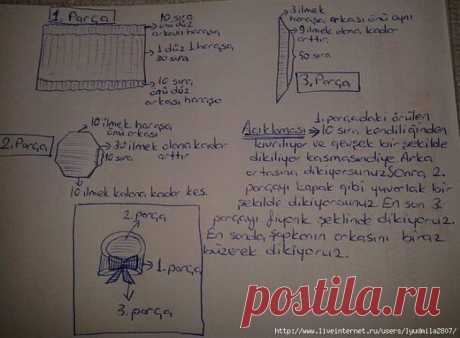 1. Parça
10 sıra
önü düz
arkası haraşo
1 düz 1 haraşa
90 sıra
10 sıra,
önü düz
arkası haraşo
3 ilmek
haraşa, arkası önü aynı
9 ilmek olana kadar
arttır.
50 sıra
3. Parça
2. Parça
10 ilmek haraşa,
önü arkası
30 ilmek olana kadar
arttır
10 sıra
10 ilmek kalana kadar kes.
Açıklaması
1. parçadaki örülen
10 sıra kendiliğinden
kıvrılıyor ve gevşek bir şekilde
dikiliyor kasmasın diye Arka
ortasına dikiyorsunuz Sonra 2.
parçayı kapak gibi yuvarlak bir
şekilde dikiyorsunuz En son 3.
parçayı fiyonk şeklinde dikiyoruz.
En sonda şapkanın arkasını biraz
büzerek dikiyoruz.
2. parça
1. parça
3. parça
postila.ru
http://www.liveinternet.ru/users/lyudmila2807/